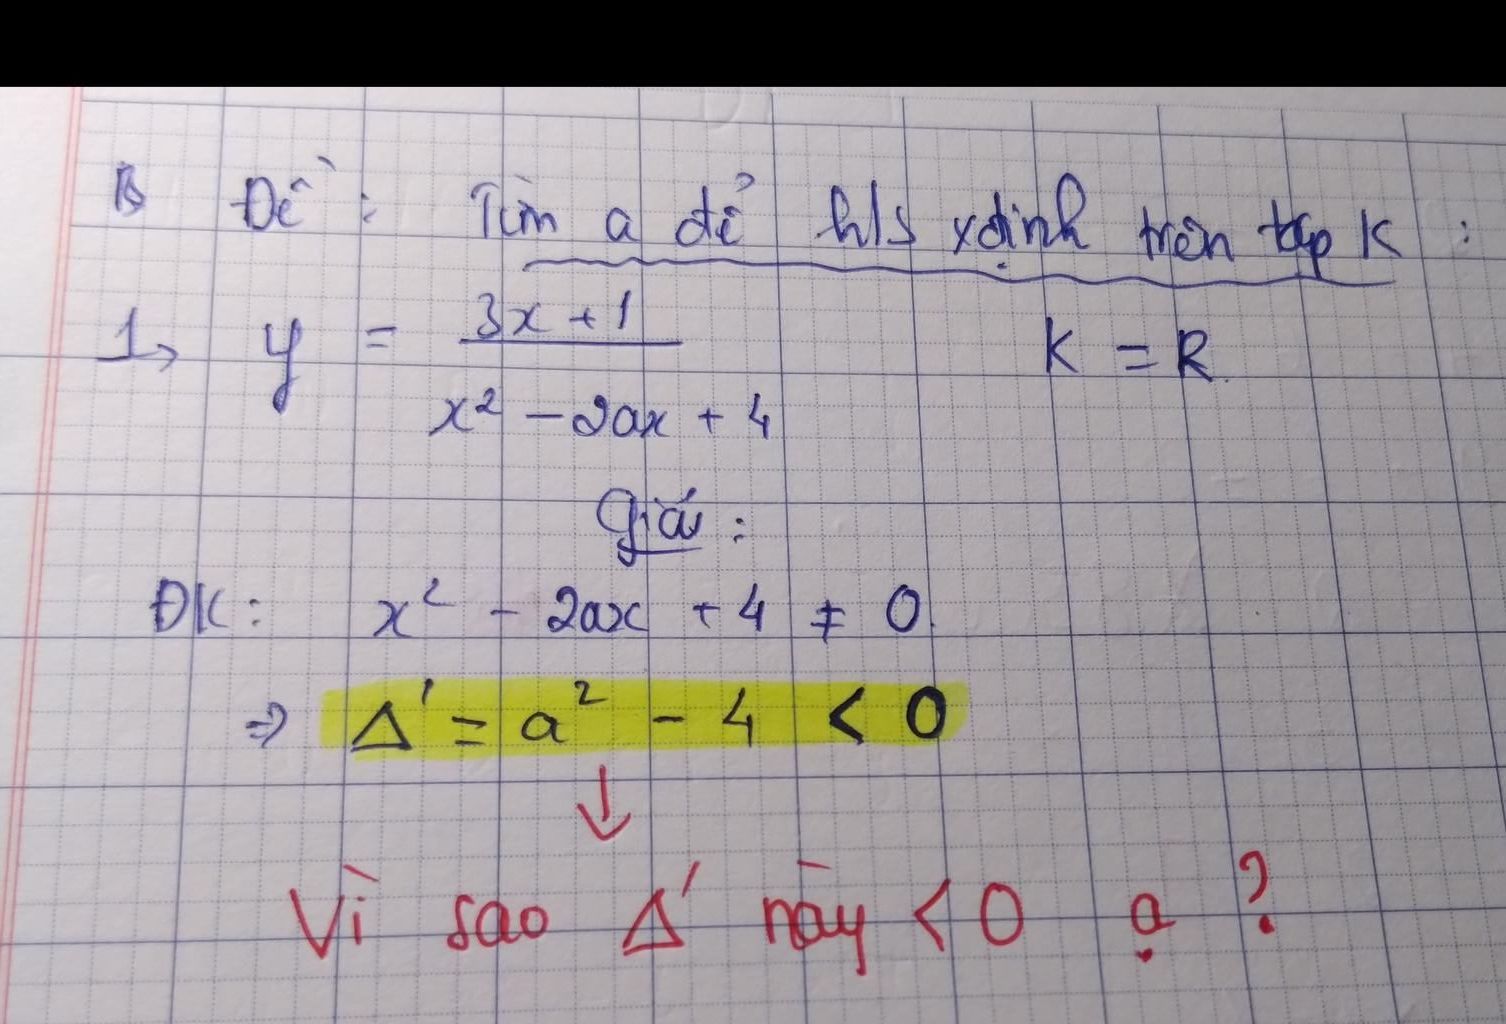 Đề : Tìm a để h/s xđịnh trên tập K :
1, y = \frac{3x + 1}{x² - 2ax + 4} K = R.
Giải :
ĐK : x² - 2ax + 4 ≠ 0.
⇒ Δ' = a² - 4 < 0
↓
Vì sao Δ' này < 0 ạ ?